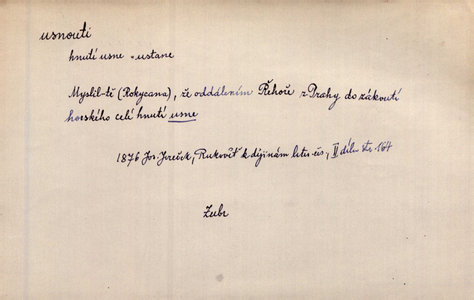 usnouti
hnutí usne = ustane
Myslil-tě (Rokycana), že oddálením Řehoře z Prahy do zákoutí
horského celé hnutí usne
1876 Jos. Jireček, Rukověť k dějinám lit. čes., II dílu str. 164
Zubr